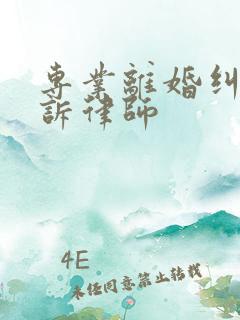 專業離婚糾
訴律師
4E
未经同意禁止转载